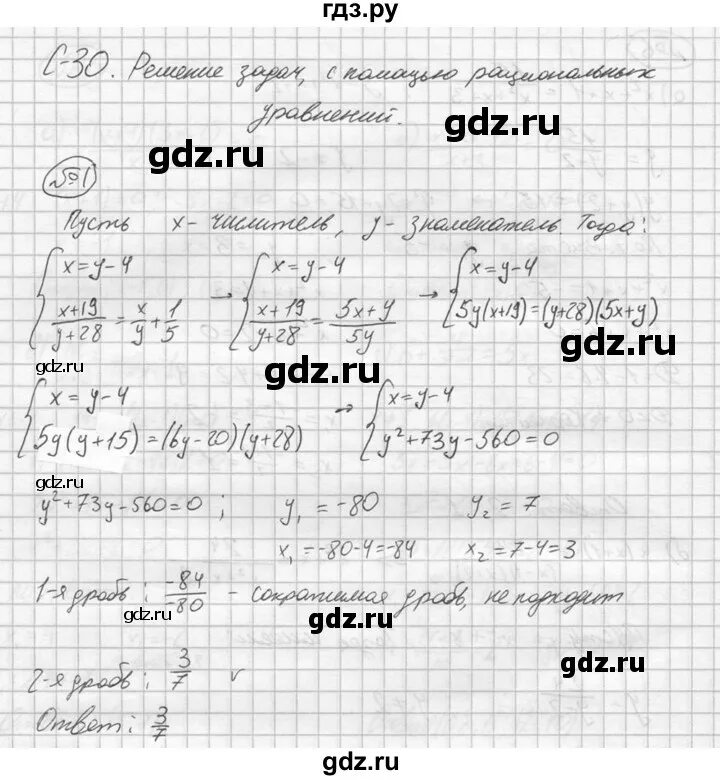 гдз.ру
С-30. Решение задач, с помощью рациональных
уравнений.
gdz.ru
№1
Пусть x - числитель, y - знаменатель. Тогда:
{ x = y - 4 → { x = y - 4 → { x = y - 4
(x+19)/(y+28) = x/y + 1/5 (x+19)/(y+28) = (5x+y)/5y 5y(x+19) = (y+28)(5x+y)
gdz.ru gdz.ru gdz.ru
{ x = y - 4 → { x = y - 4
5y(y+15) = (6y-20)(y+28) y² + 73y - 560 = 0
gdz.ru gdz.ru
y² + 73y - 560 = 0 ; y₁ = -80 y₂ = 7
x₁ = -80-4 = -84 x₂ = 7-4 = 3
1-я дробь: -84/-80 - сократимая дробь, не подходит
gdz.ru gdz.ru
gdz.ru
2-я дробь: 3/7 v
Ответ: 3/7
gdz.ru